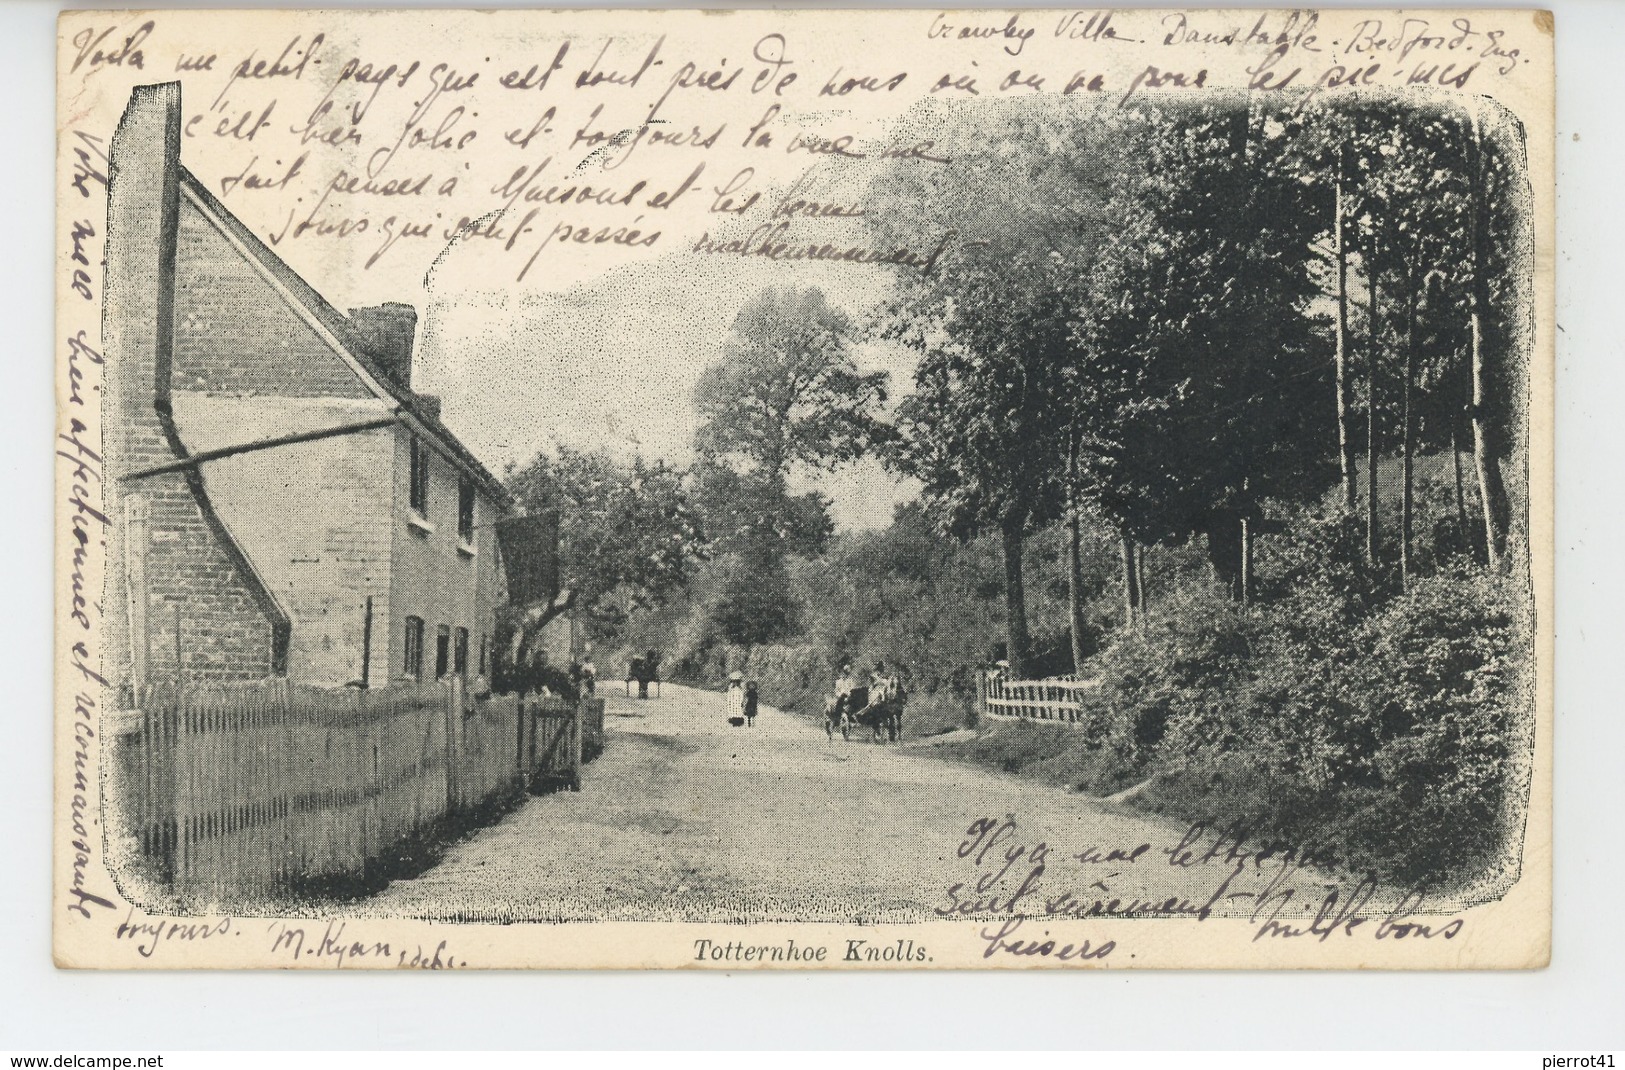 Crawley Villa. Dunstable. Bedford. Eng.
Voila un petit pays qui est tout près de nous où on va pour les pic-nics
c'est bien jolie et toujours la vue me
fait penser à Maisons et les beaux
jours qui sont passés malheureusement
Votre nièce bien affectionnée et reconnaissante
toujours. M. Ryan
Il y a une lettre qui
suit sûrement Mille bons
baisers.
Totternhoe Knolls.
www.delcampe.net
pierrot41